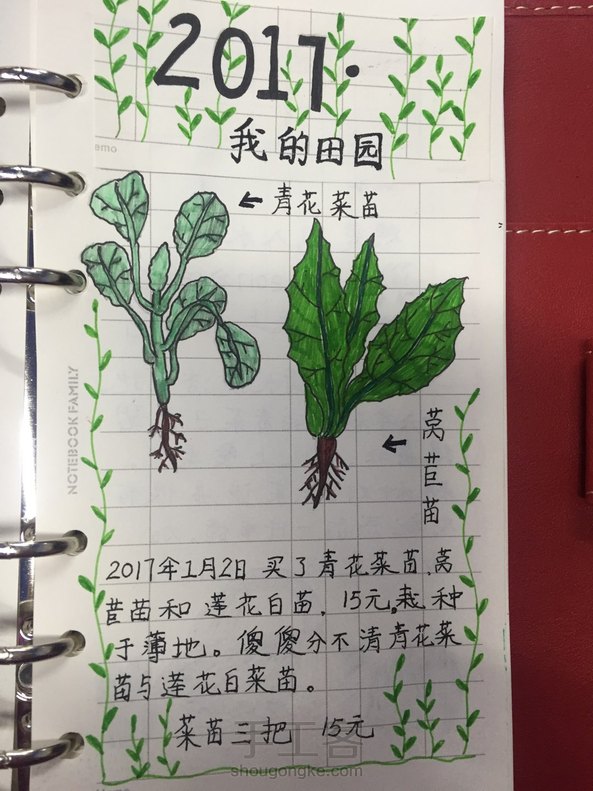 2017.
emo
我的田园
←青花菜苗
莴苣苗
←
NOTEBOOK FAMILY
2017年1月2日 买了青花菜苗、莴
苣苗和莲花白苗，15元。栽种
于薄地。傻傻分不清青花菜
苗与莲花白菜苗。
菜苗三把 15元
手工客
shougongke.com